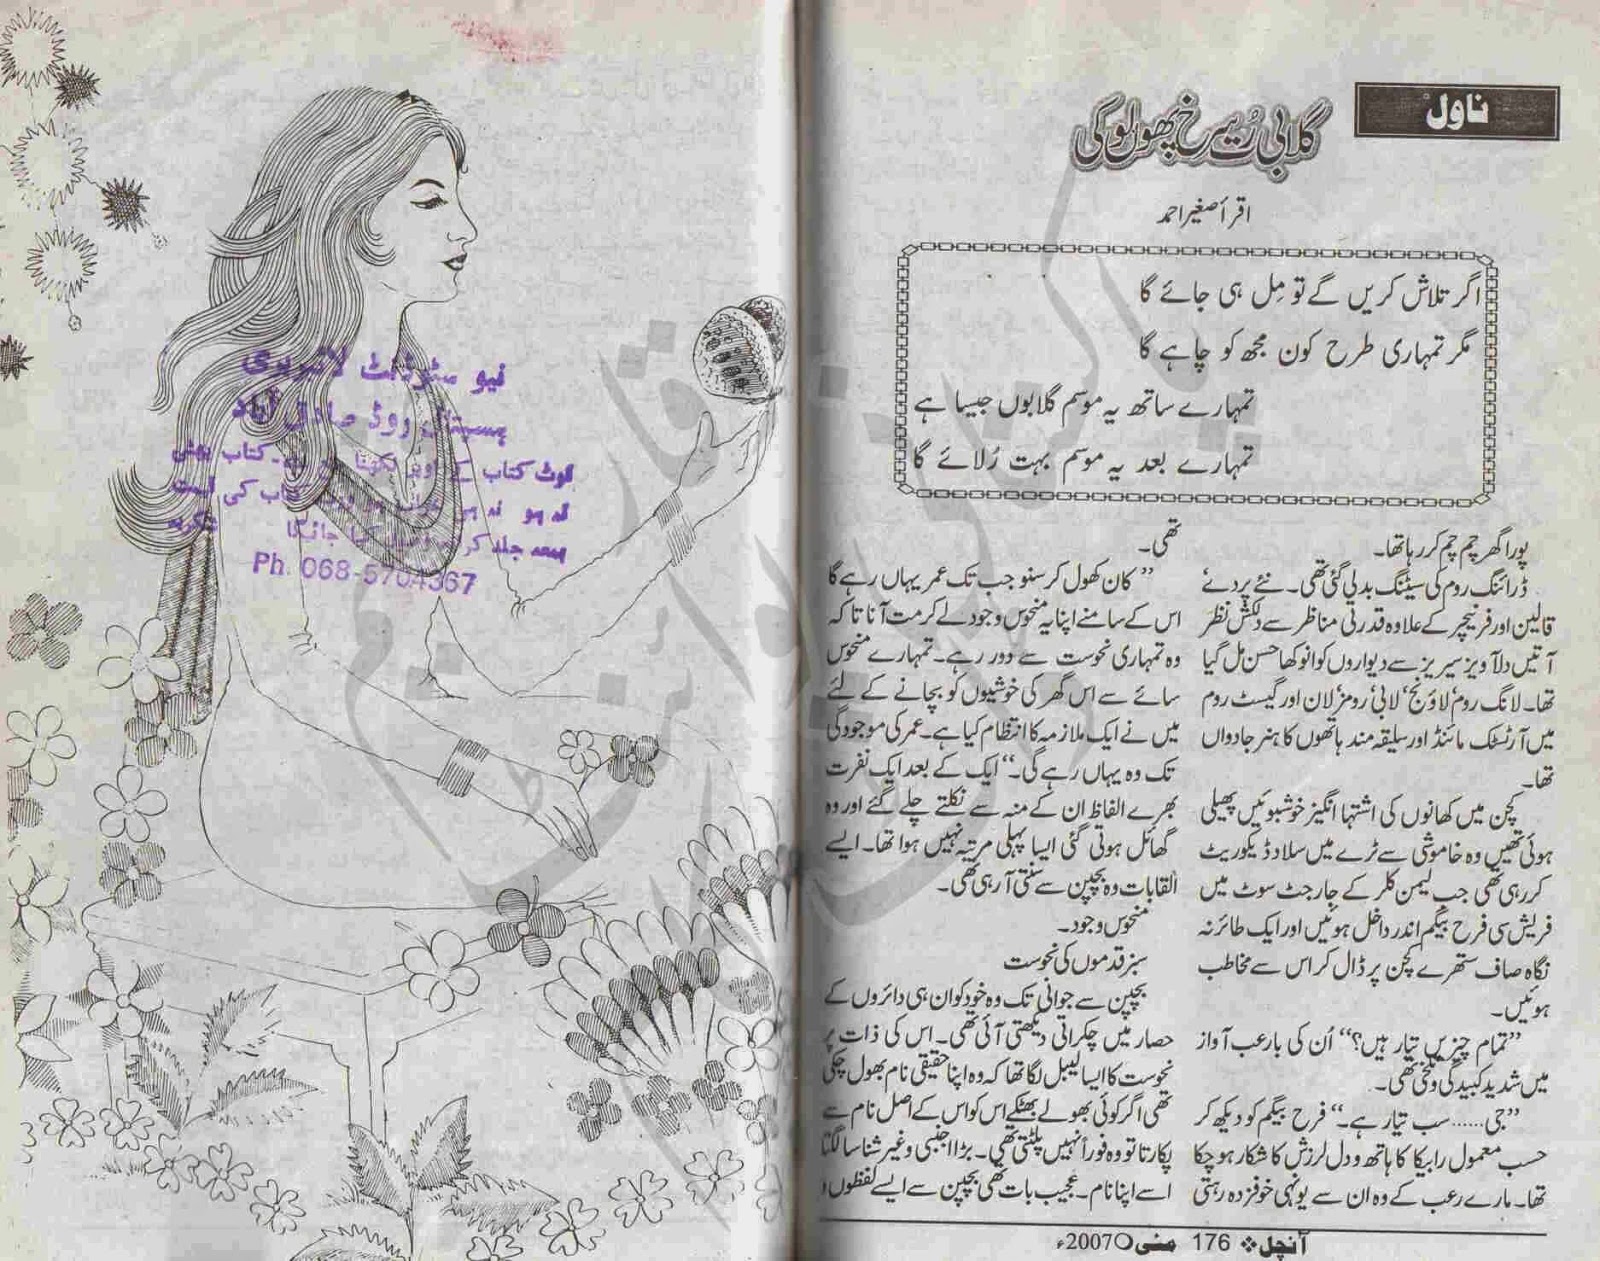 ناول
گلابی رُت سرخ پھولوں کی
اقرأ صغیر احمد
اگر تلاش کریں گے تو مِل ہی جائے گا
مگر تمہاری طرح کون مجھ کو چاہے گا
تمہارے ساتھ یہ موسم گلابوں جیسا ہے
تمہارے بعد یہ موسم بہت رُلائے گا
پورا گھر چم چم کر رہا تھا۔
ڈرائنگ روم کی سیٹنگ بدلی گئی تھی۔ نئے پردے‘
قالین اور فرنیچر کے علاوہ قدرتی مناظر سے دلکش نظر
آتیں دلآویز سیریز سے دیواروں کو انوکھا حسن مل گیا
تھا۔ لانگ روم‘ لاؤنج‘ لابی‘ رومز‘ لان اور گیسٹ روم
میں آرٹسٹک مائنڈ اور سلیقہ مند ہاتھوں کا ہنر جادواں
تھا۔
کچن میں کھانوں کی اشتہا انگیز خوشبوئیں پھیلی
ہوئی تھیں وہ خاموشی سے ٹرے میں سلاد ڈیکوریٹ
کر رہی تھی جب لیمن کلر کے جارجٹ سوٹ میں
فریش سی فرح بیگم اندر داخل ہوئیں اور ایک طائرنہ
نگاہ صاف ستھرے کچن پر ڈال کر اس سے مخاطب
ہوئیں۔
”تمام چیزیں تیار ہیں؟“ اُن کی بارعب آواز
میں شدید کبیدگی و تلخی تھی۔
”جی...... سب تیار ہے۔“ فرح بیگم کو دیکھ کر
حسب معمول رابیکا کا ہاتھ و دل لرزش کا شکار ہو چکا
تھا۔ مارے رعب کے وہ ان سے یونہی خوفزدہ رہتی
تھی۔
”کان کھول کر سنو جب تک عمر یہاں رہے گا
اس کے سامنے اپنا یہ منحوس وجود لے کر مت آنا تا کہ
وہ تمہاری نحوست سے دور رہے۔ تمہارے منحوس
سائے سے اس گھر کی خوشیوں کو بچانے کے لئے
میں نے ایک ملازمہ کا انتظام کیا ہے۔ عمر کی موجودگی
تک وہ یہاں رہے گی۔“ ایک کے بعد ایک نفرت
بھرے الفاظ ان کے منہ سے نکلتے چلے گئے اور وہ
گھائل ہوتی گئی ایسا پہلی مرتبہ نہیں ہوا تھا۔ ایسے
القابات وہ بچپن سے سنتی آ رہی تھی۔
منحوس وجود۔
سبز قدموں کی نحوست
بچپن سے جوانی تک وہ خود کو ان ہی دائروں کے
حصار میں چکراتی دیکھتی آئی تھی۔ اس کی ذات پر
نحوست کا ایسا لیبل لگا تھا کہ وہ اپنا حقیقی نام بھول چکی
تھی اگر کوئی بھولے بھٹکے اس کو اس کے اصل نام سے
پکارتا تو وہ فوراً نہیں پلٹتی تھی۔ بڑا اجنبی و غیر شناسا لگتا
اسے اپنا نام۔ عجیب بات تھی بچپن سے ایسے لفظوں و
آنچل ❖ 176 مئی 2007ء
نیو سٹوڈنٹ لائبریری
ہسپتال روڈ صادق آباد
نوٹ کتاب کے اوپر لکھنا منع ہے۔ کتاب پھٹی
نہ ہو نہ ہی کتاب کی قیمت
جلد کر وصول کیا جائیگا شکریہ
Ph. 068-5704367
پاکستانی پوائنٹ